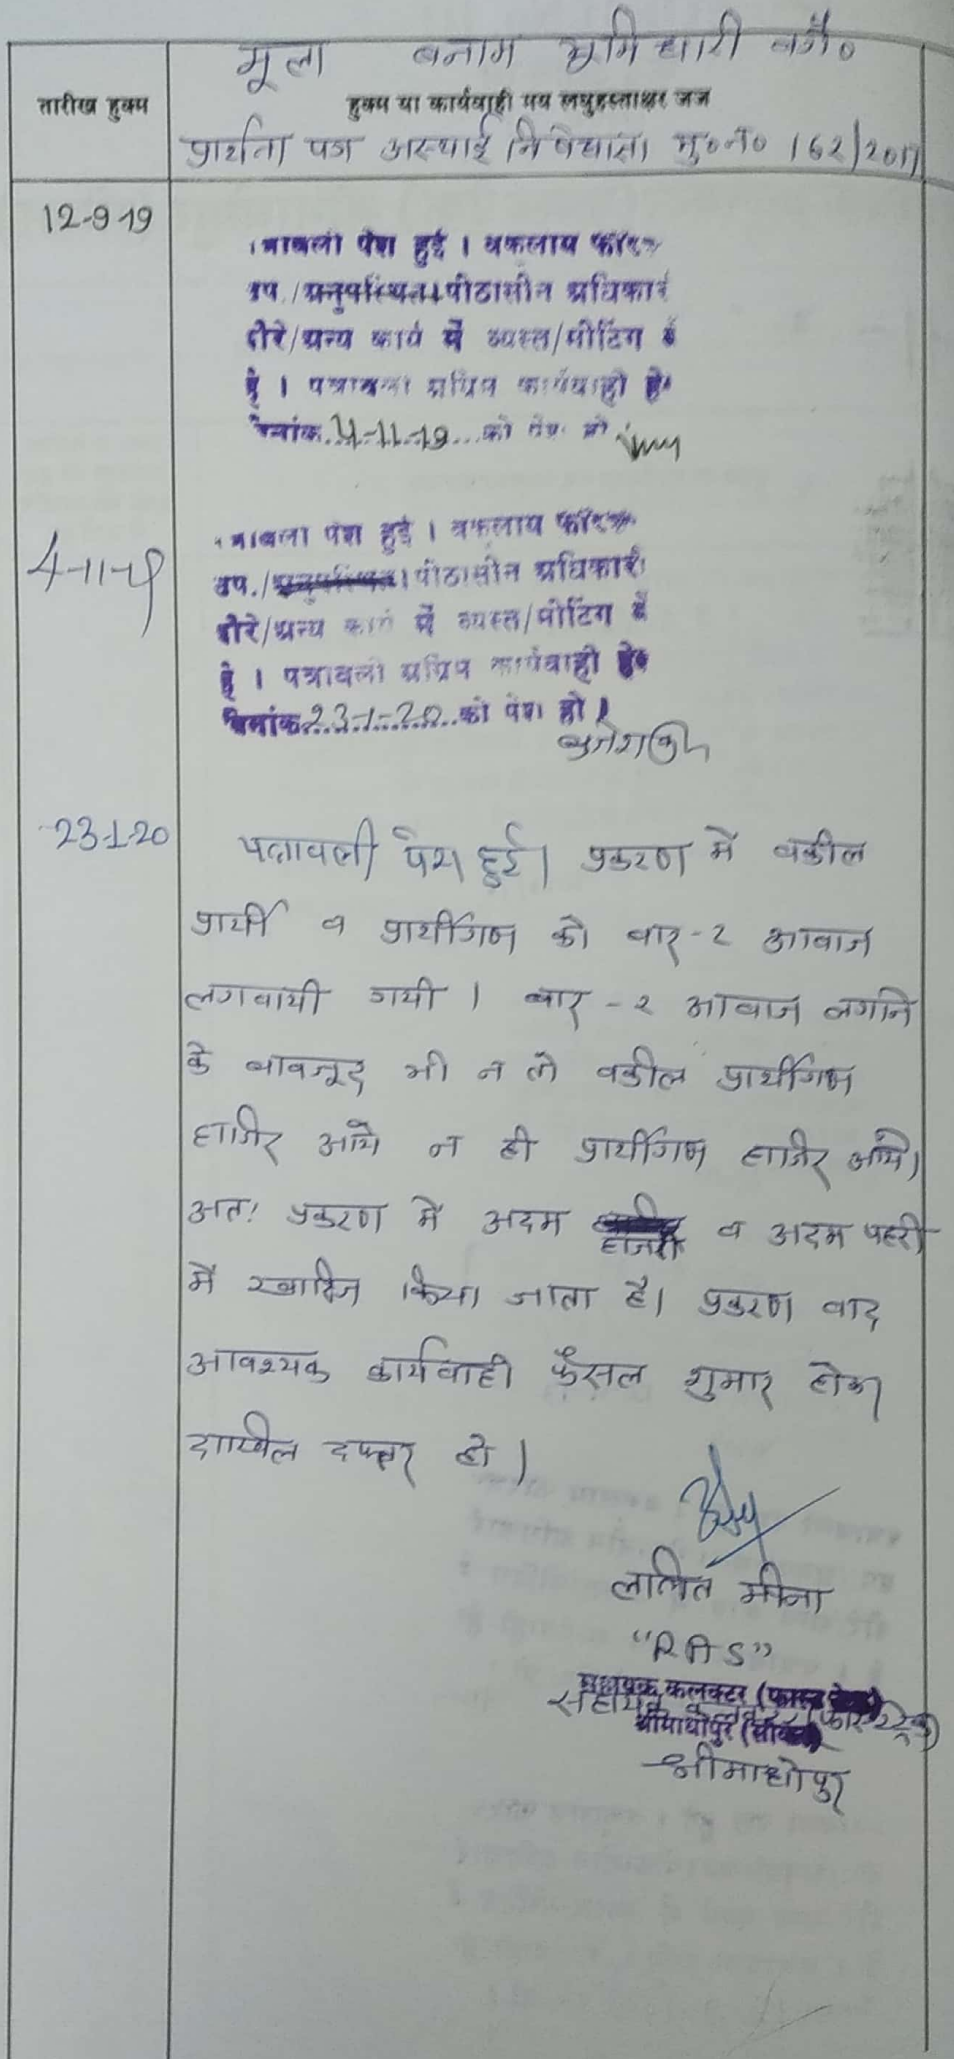 मूला बनाम भूमिधारी वगै०
तारीख हुक्म
हुक्म या कार्यवाही मय लघुहस्ताक्षर जज
प्रार्थना पत्र अस्थाई निषेधाज्ञा मु०न० 162/2017
12-9-19
पत्रावली पेश हुई । वकलाय फरिकैन
उप./अनुपस्थित।पीठासीन अधिकारी
दौरे/अन्य कार्य में व्यस्त/मीटिंग में
है । पत्रावली अग्रिम कार्यवाही हेतु
दिनांक 4-11-19 को पेश हो
4-11-19
पत्रावली पेश हुई । वकलाय फरिकैन
उप./अनुपस्थित।पीठासीन अधिकारी
दौरे/अन्य कार्य में व्यस्त/मीटिंग में
है । पत्रावली अग्रिम कार्यवाही हेतु
दिनांक 23-1-20 को पेश हो ।
23-1-20
पत्रावली पेश हुई। प्रकरण में वकील
प्रार्थी व प्रार्थीगण को बार-२ आवाज
लगवायी गयी । बार-२ आवाज लगाने
के बावजूद भी न तो वकील प्रार्थीगण
हाजिर आये न ही प्रार्थीगण हाजिर आये।
अत: प्रकरण में अदम हाजरी व अदम पैहरवी
में खारिज किया जाता है। प्रकरण बाद
आवश्यक कार्यवाही फैसल शुमार होकर
दाखिल दफ्तर हो ।
ललित मीना
"RAS"
सहायक कलक्टर (फास्ट ट्रेक)
सहायक कलक्टर (फास्ट ट्रेक)
श्रीमाधोपुर (सीकर)
श्रीमाधोपुर